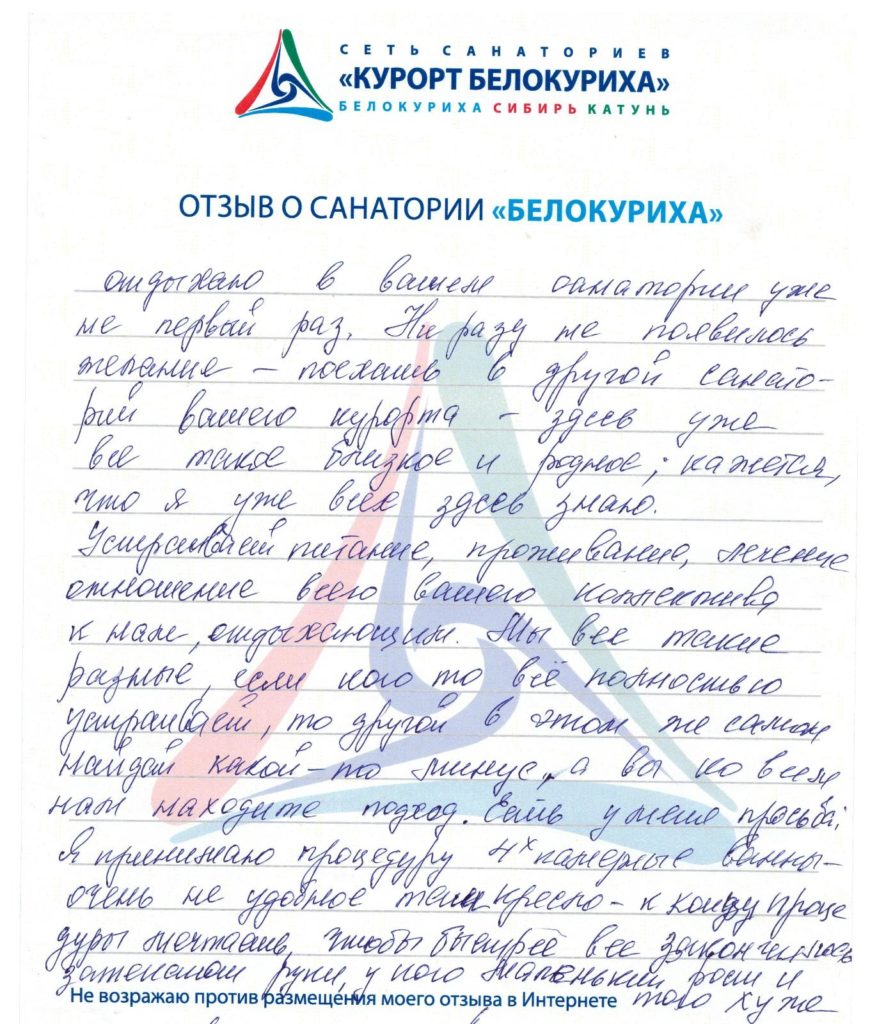 СЕТЬ САНАТОРИЕВ
«КУРОРТ БЕЛОКУРИХА»
БЕЛОКУРИХА СИБИРЬ КАТУНЬ
ОТЗЫВ О САНАТОРИИ «БЕЛОКУРИХА»
отдыхаю в вашем санатории уже
не первый раз. Ни разу не появилось
желание – поехать в другой санато-
рий вашего курорта – здесь уже
все такое близкое и родное; кажется,
что я уже всех здесь знаю.
Устраивает питание, проживание, лечение
отношение всего вашего коллектива
к нам, отдыхающим. Мы все такие
разные, если кого то всё полностью
устраивает, то другой в этом же самом
найдёт какой-то минус, а вы ко всем
нам находите подход. Есть у меня просьба:
Я принимаю процедуру 4х камерные ванны –
очень не удобное там кресло – к концу проце
дуры мечтаешь, чтобы быстрее все закончилось
затекают руки, у кого маленький рост и
Не возражаю против размещения моего отзыва в Интернете того хуже